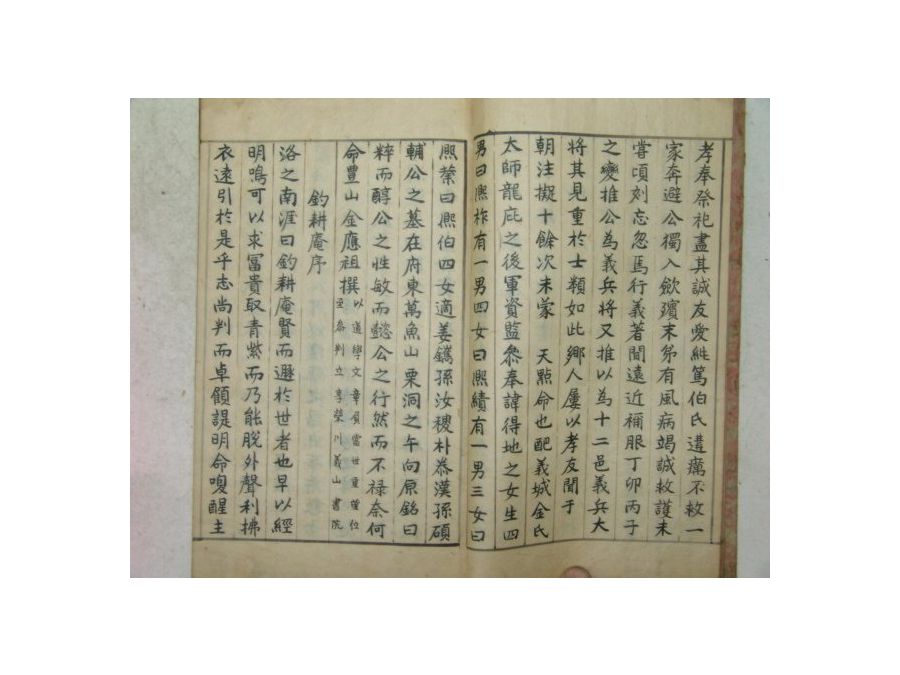 孝奉祭祀盡其誠友愛純篤伯氏遘癘不救一
家奔避公獨入歛殯末弟有風病竭誠救護未
嘗頃刻忘忽焉行義著聞遠近稱服丁卯丙子
之變推公為義兵將又推以為十二邑義兵大
將其見重於士類如此鄉人屢以孝友聞于
朝注擬十餘次未蒙 天點命也配義城金氏
太師龍庇之後軍資監叅奉諱得地之女生四
男曰煕柞有一男四女曰煕績有一男三女曰
煕榮曰煕伯四女適姜鑴孫汝稷朴泰漢孫碩
輔公之墓在府東萬魚山栗洞之午向原銘曰
粹而醇公之性敏而懿公之行然而不禄奈何
命豊山金應祖撰 以道學文章負當世重望位
至叅判立享榮川義山書院
釣耕庵序
洛之南涯曰釣耕庵賢而遯於世者也早以經
明鳴可以求冨貴取青紫而乃能脫外聲利拂
衣遠引於是乎志尚判而卓顧諟明命喚醒主